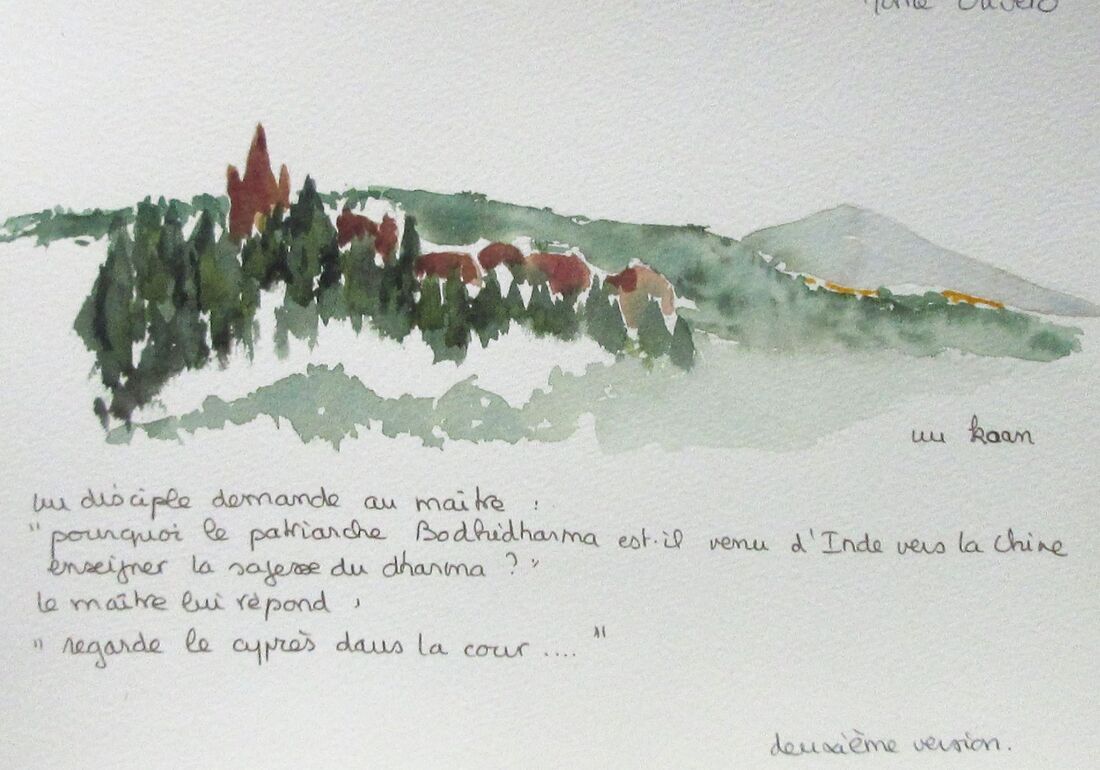 un koan
un disciple demande au maître :
" pourquoi le patriarche Bodhidharma est-il venu d'Inde vers la Chine
enseigner la sagesse du dharma ? "
le maître lui répond ,
" regarde le cyprès dans la cour .... "
deuxième version.